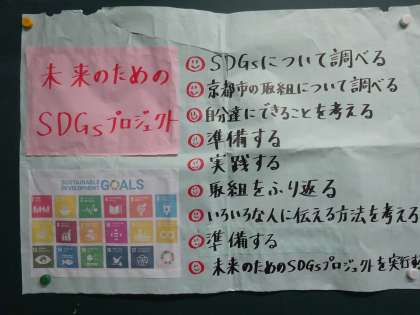 未来のための
SDGsプロジェクト
SUSTAINABLE
DEVELOPMENT GOALS
SDGsについて調べる
京都市の取組について調べる
自分達にできることを考える
準備する
実践する
取組をふり返る
いろいろな人に伝える方法を考える
準備する
未来のためのSDGsプロジェクトを実行